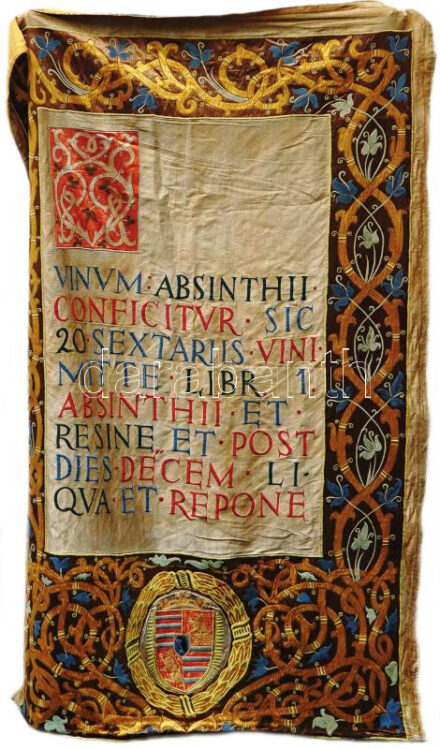 VINVM : ABSINTHII ·
CONFICITVR · SIC
20 · SEXTARIIS · VINI
MITTE · LIBR · 1
ABSINTHII · ET ·
RESINE · ET · POST
DIES · DECEM · LI ·
QVA · ET · REPONE
darabanth